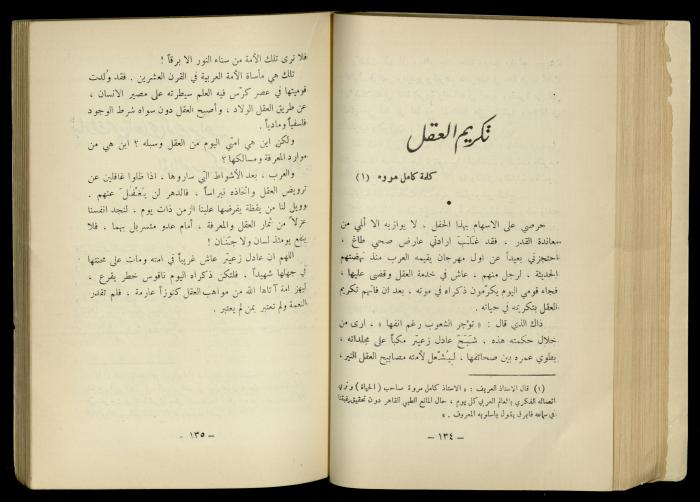 تكريم العقل
كلمة كامل مروه (١)
حرصي على الاسهام بهذا الحفل ، لا يوازيه الا ألمي من
معاندة القدر . فقد غالبت ارادتي عارض صحي طاغ ،
احتجزني بعيداً عن اول مهرجان يقيمه العرب منذ نهضتهم
الحديثة ، لرجل منهم ، عاش في خدمة العقل وقضى عليها ،
فجاء قومي اليوم يكرّمون ذكراه في موته ، بعد ان فاتهم تكريم
العقل بتكريمه في حياته .
ذاك الذي قال : « تؤجر الشعوب رغم انفها » ، ارى من
خلال حكمته هذه ، شبح عادل زعيتر مكباً على مجلداته ،
يطوي عمره بين صحائفها ، ليشعل لأمته مصابيح العقل النير ،
(١) قال الاستاذ العريف : « الاستاذ كامل مروة صاحب ( الحياة ) وذوي
اتصاله الفكري بالعالم العربي كل يوم ، حال المانع الطبي القاهر دون تحقيق رغبتنا
في سماعه يقول باسلوبه المعروف . »
– ١٣٤ –
فلا ترى تلك الأمة من سناء النور الا برقاً !
تلك هي مأساة الأمة العربية في القرن العشرين . فقد ولدت
قوميتها في عصر كرّس فيه العلم سيطرته على مصير الانسان ،
عن طريق العقل الولاد ، وأصبح العقل دون سواه شرط الوجود
فلسفياً ومادياً .
ولكن اين هي امتي اليوم من العقل وسبله ؟ اين هي من
موارد المعرفة ومسالكها ؟
والعرب ، بعد الأشواط التي ساروها ، اذا ظلوا غافلين عن
ترويض العقل واتخاذه نبراساً ، فالدهر لن يغفل عنهم .
وويل لنا من يقظة يفرضها علينا الزمن ذات يوم ، لنجد انفسنا
عزلاً من ثمار العقل والمعرفة ، أمام عدو متسربل بهما ، فلا
ينفع يومئذ لسان ولا جنان !
اللهم ان عادل زعيتر عاش غريباً في امته ومات على محنتها
في جهلها شهيداً ، فلتكن ذكراه اليوم ناقوس خطر يقرع ،
ليهز امة آتاها الله من مواهب العقل كنوزاً عارمة ، فلم تقدر
النعمة ولم تعتبر بمن لم يعتبر .
– ١٣٥ –